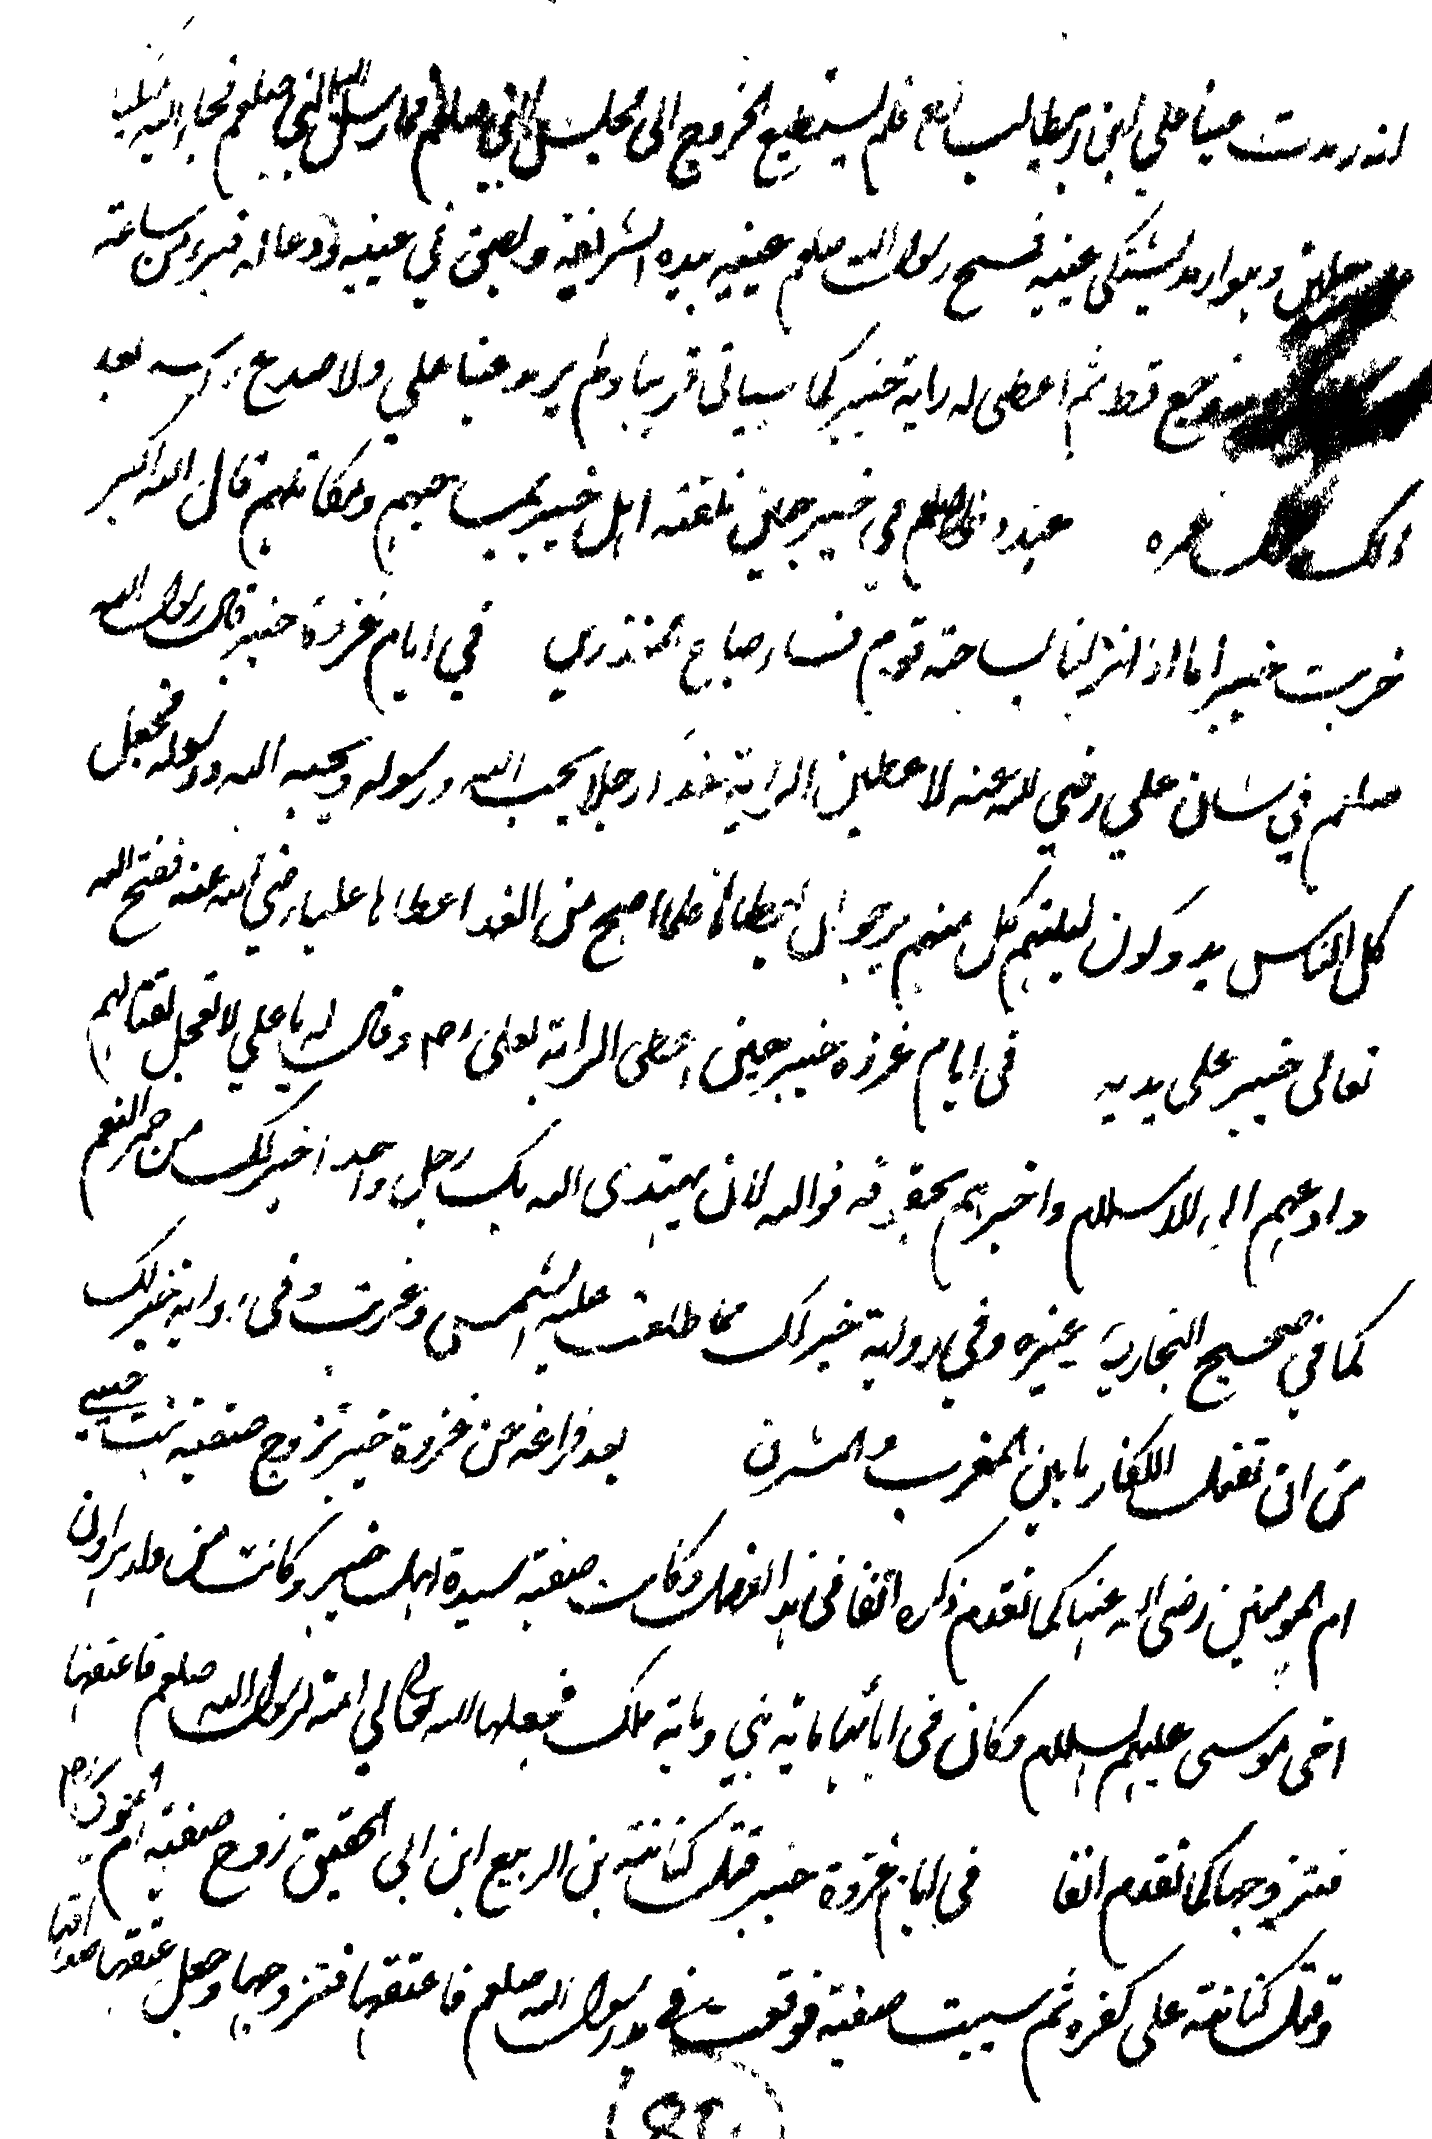 انه رمدت عينا علي ابن ابيطالب رضع فلم يستطيع الخروج الى مجلس النبي صلعم فارسل اليه النبي صلعم فجا اليه
حين وهو ارمد يشتكى عينيه فمسح رسول الله صلعم عينيه بيده الشريفة وبصق في عينيه ودعا له فبرء من ساعته
وجع قط ثم اعطى له راية خيبر كما سياتى قريبا ولم يرمد عينا علي ولا صدع راسه بعد
ذلك عند دخوله صلعم في خيبر حين تلقته اهل خيبر بمساحيهم ومكاتلهم قال الله اكبر
خربت خيبر انا اذا نزلنا بساحة قوم فساء صباح المنذرين في ايام غزوة خيبر قال رسول الله
صلعم في شان علي رضي الله عنه لاعطين الراية غدا رجلا يحب الله ورسوله ويحبه الله ورسوله فجعل
كل الناس يدوكون ليلتهم كل منهم يرجو ان يعطاها فلما اصبح من الغد اعطاها عليا رضي الله عنه ففتح الله
تعالى خيبر على يديه في ايام غزوة خيبر حين اعطى الراية لعلى رضه وقال له يا علي لا تعجل لقتالهم
وادعهم الى الاسلام واخبرهم بحقوقه فوالله لان يهتدى الله بك رجل واحد اخير لك من حمر النعم
كما في صحيح البخاري وغيره وفي رواية خير لك مما طلعت عليه الشمس وغربت وفى رواية خير لك
من ان تقتل الكفار ما بين المغرب والمشرق بعد فراغه من غزوة خيبر تزوج صفية بنت حيي
ام المومنين رضى الله عنها كما تقدم ذكره انفا في هذا الفصل وكانت صفية سيدة اهل خيبر وكانت من ولد هارون
اخى موسى عليهم السلام وكان فى ابائها ماية نبي وماية ملك فجعلها الله تعالي امة لرسول الله صلعم فاعتقها
فتزوجها كما تقدم انفا فى ايام غزوة خيبر قتل كنانة بن الربيع ابن ابي الحقيق زوج صفية ام المومنين رضه
وقتل كنانة على كفره ثم سبيت صفية فوقعت في يد رسول الله صلعم فاعتقها فتزوجها وجعل عتقها صداقها